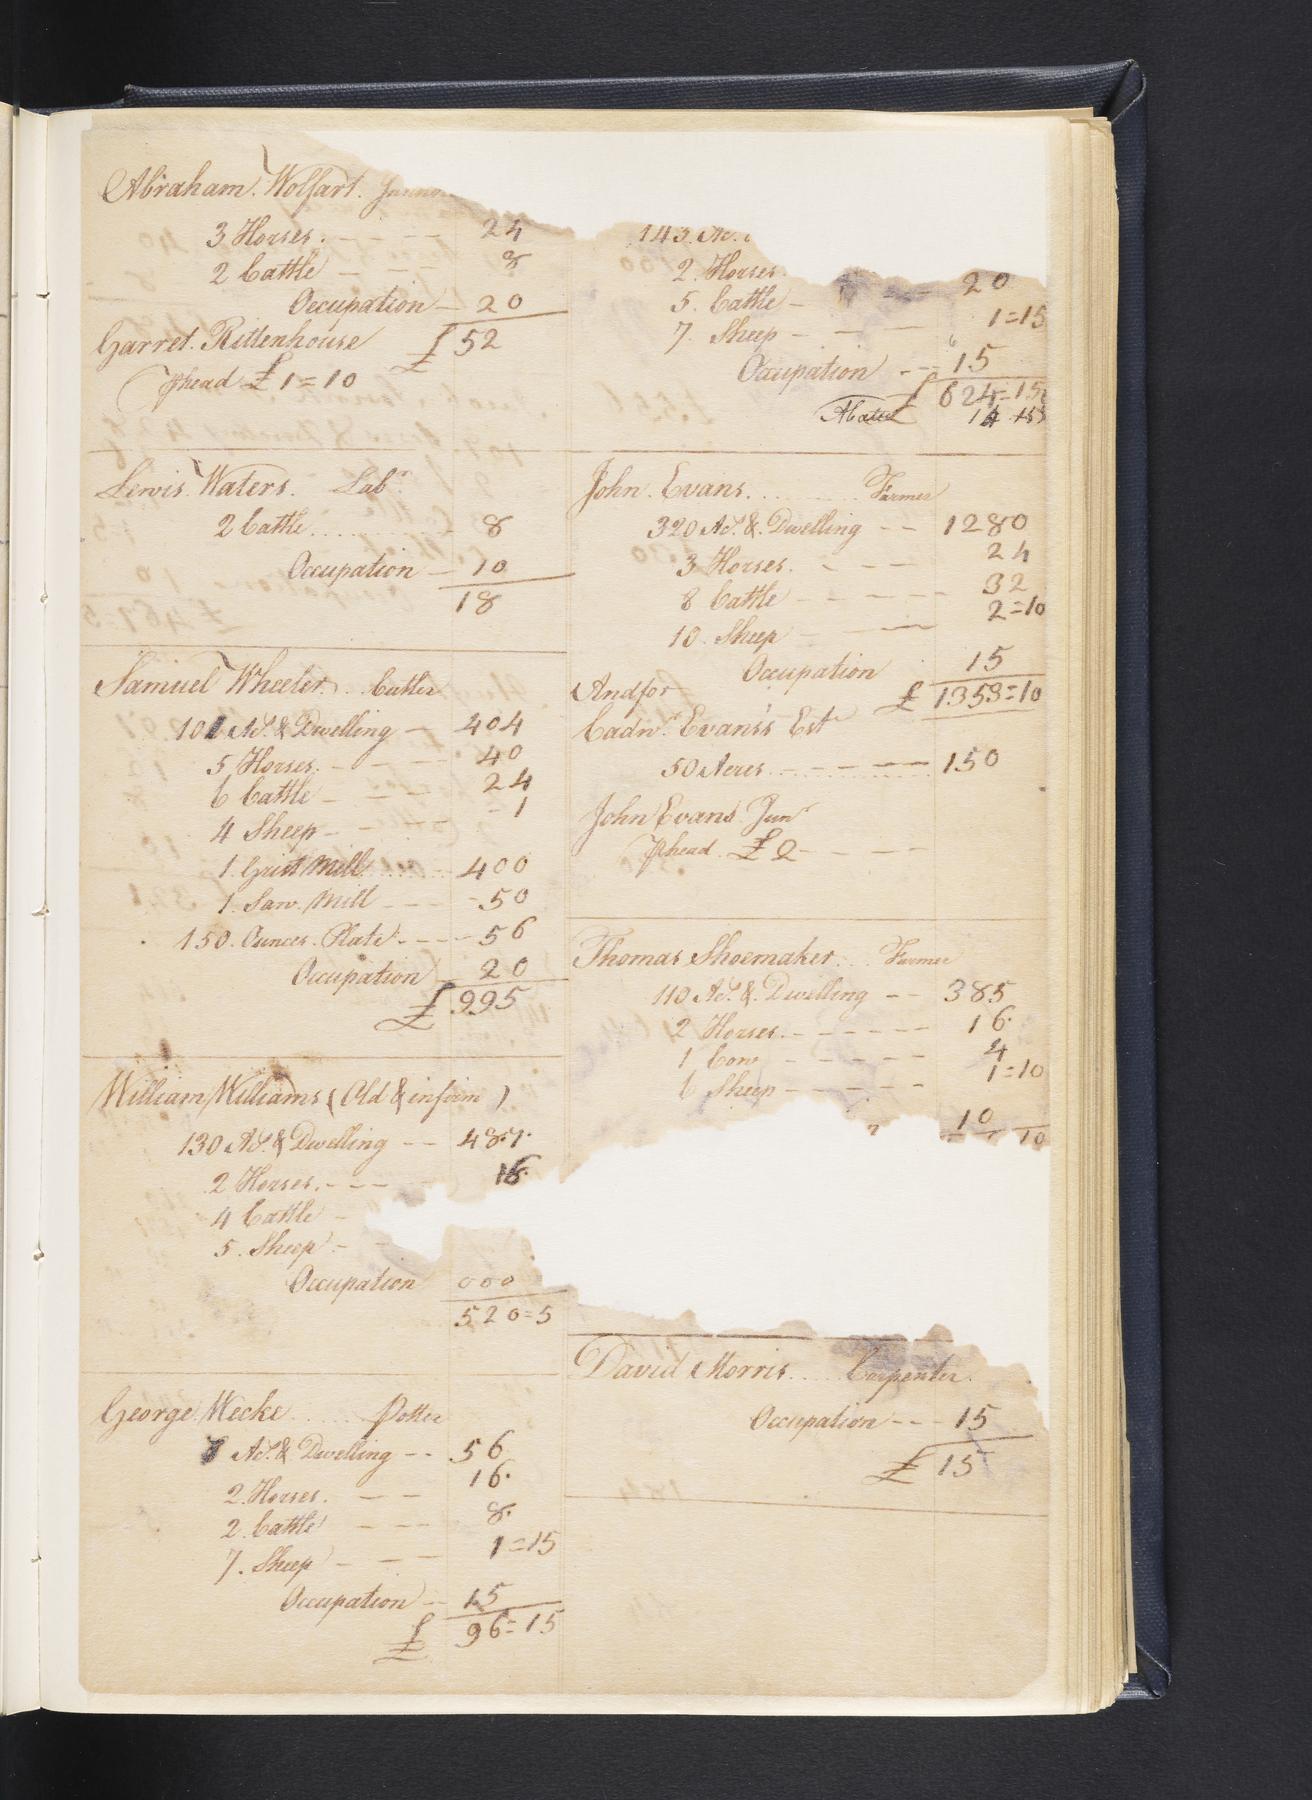 Abraham Wolfart.
3 Horses. - - - 24
2 Cattle - - - 8
Occupation - 20
£ 52
Garret Rittenhouse
phead £ 1=10
Lewis Waters. Labr.
2 Cattle........ 8
Occupation - 10
18
Samuel Wheeler... Cutler
101 As. & Dwelling - 404
5 Horses. - - - 40
6 Cattle - - - 24
4 Sheep - - - 1
1. Grist Mill ...... 400
1. Saw. Mill - - - 50
150. Ounces. Plate. - - - 56
Occupation - 20
£ 995
William Williams (Old & infirm)
130 As. & Dwelling - - 487.
2 Horses. - - - 16.
4 Cattle -
5. Sheep - -
Occupation 000
520=5
George Mecke ...... Potter
As. & Dwelling - - 56
2. Horses. - - 16.
2. Cattle - - - 8.
7. Sheep - - - 1=15
Occupation - 15
£ 96=15
143. Ac.
2. Horses.
5. Cattle - - - 20
7. Sheep - - - 1=15
Occupation - - 15
£ 624=15
John. Evans. ........ Farmer
320 As. & Dwelling - - 1280
3 Horses. - - - 24
8 Cattle - - - - 32
10. Sheep - - 2=10
Occupation 15
£ 1353=10
And for
Cadwr. Evans's Est
50 Acres. - - - - 150
John Evans Junr
phead. £ 2 - - - -
Thomas Shoemaker.... Farmer
110 As. & Dwelling - - 385
2 Horses. - - - - - 16.
1 Cow - - - - - 4
6 Sheep - - - - - 1=10
10
10
David Morris.... Carpenter.
Occupation - - - 15
£ 15